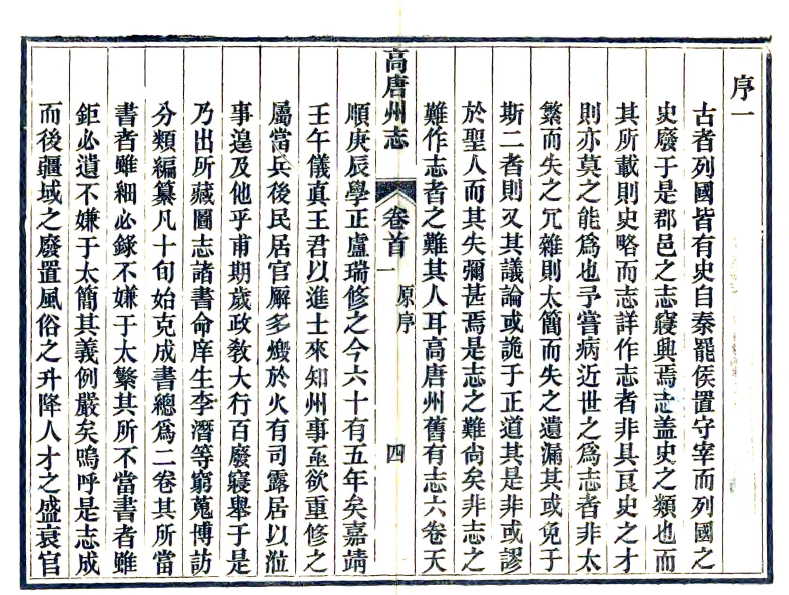 序一
古者列國皆有史自秦罷侯置守宰而列國之
史廢于是郡邑之志寖興焉志盖史之類也而
其所載則史略而志詳作志者非具良史之才
則亦莫之能爲也予嘗病近世之爲志者非太
繁而失之冗雜則太簡而失之遺漏其或免于
斯二者則又其議論或詭于正道其是非或謬
於聖人而其失彌甚焉是志之難尙矣非志之
難作志者之難其人耳高唐州舊有志六卷天
高唐州志
卷首一
原序
四
順庚辰學正盧瑞修之今六十有五年矣嘉靖
壬午儀真王君以進士來知州事亟欲重修之
屬當兵後民居官廨多燬於火有司露居以涖
事遑及他乎甫期歲政敎大行百廢寖舉于是
乃出所藏圖志諸書命庠生李潛等窮蒐博訪
分類編纂凡十旬始克成書總爲二卷其所當
書者雖細必錄不嫌于太繁其所不當書者雖
鉅必遺不嫌于太簡其義例嚴矣嗚呼是志成
而後疆域之廢置風俗之升降人才之盛衰官